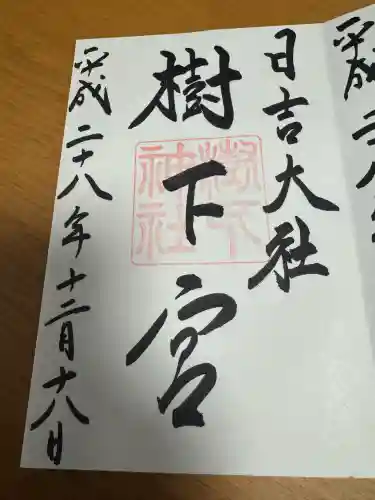 日吉大社
樹下宮
樹下
神社
平成二十八年十二月十八日
平成二八